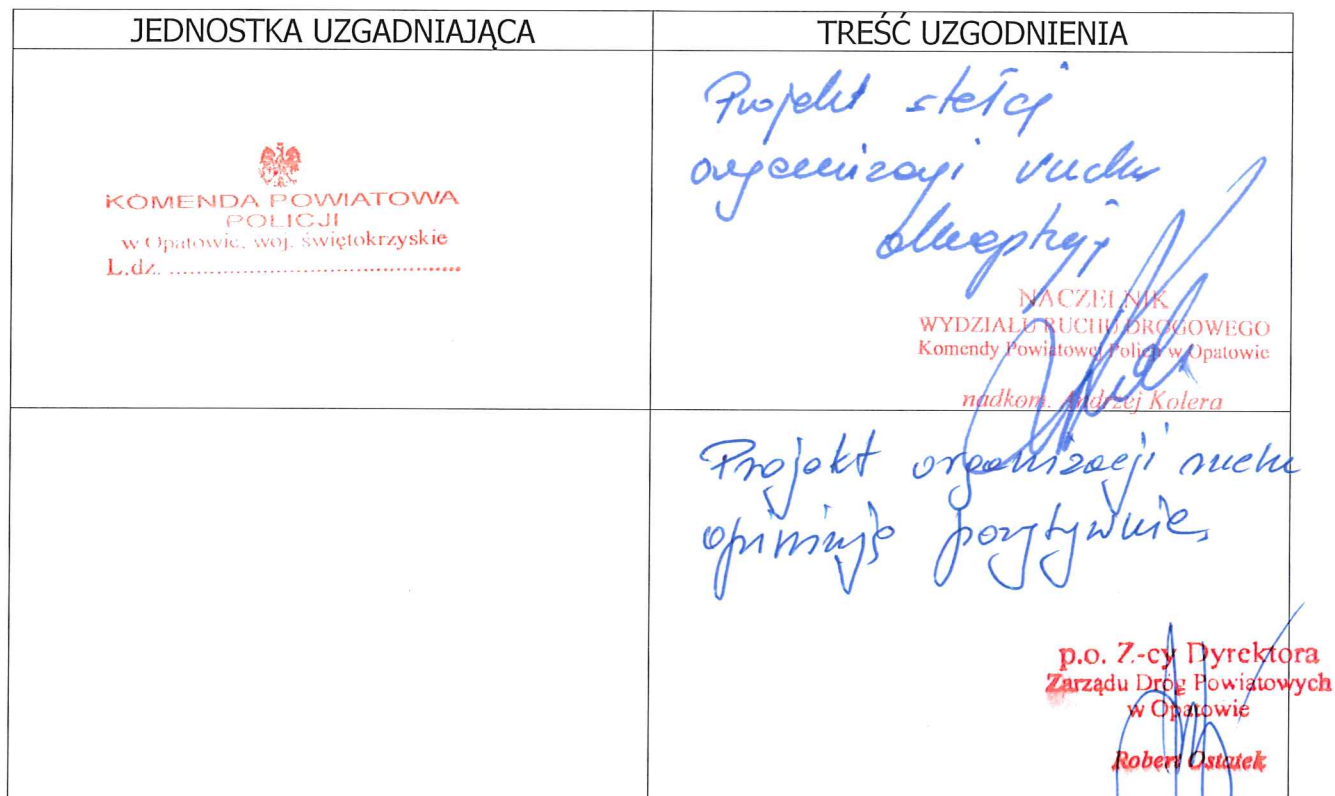 JEDNOSTKA UZGADNIAJĄCA
TREŚĆ UZGODNIENIA
KOMENDA POWIATOWA
POLICJI
w Opatowie, woj. świętokrzyskie
L.dz. ..........................................
Projekt stałej
organizacji ruchu
akceptuję
NACZELNIK
WYDZIAŁU RUCHU DROGOWEGO
Komendy Powiatowej Policji w Opatowie
nadkom. Andrzej Kolera
Projekt organizacji ruchu
opiniuję pozytywnie
p.o. Z-cy Dyrektora
Zarządu Dróg Powiatowych
w Opatowie
Robert Ostatek